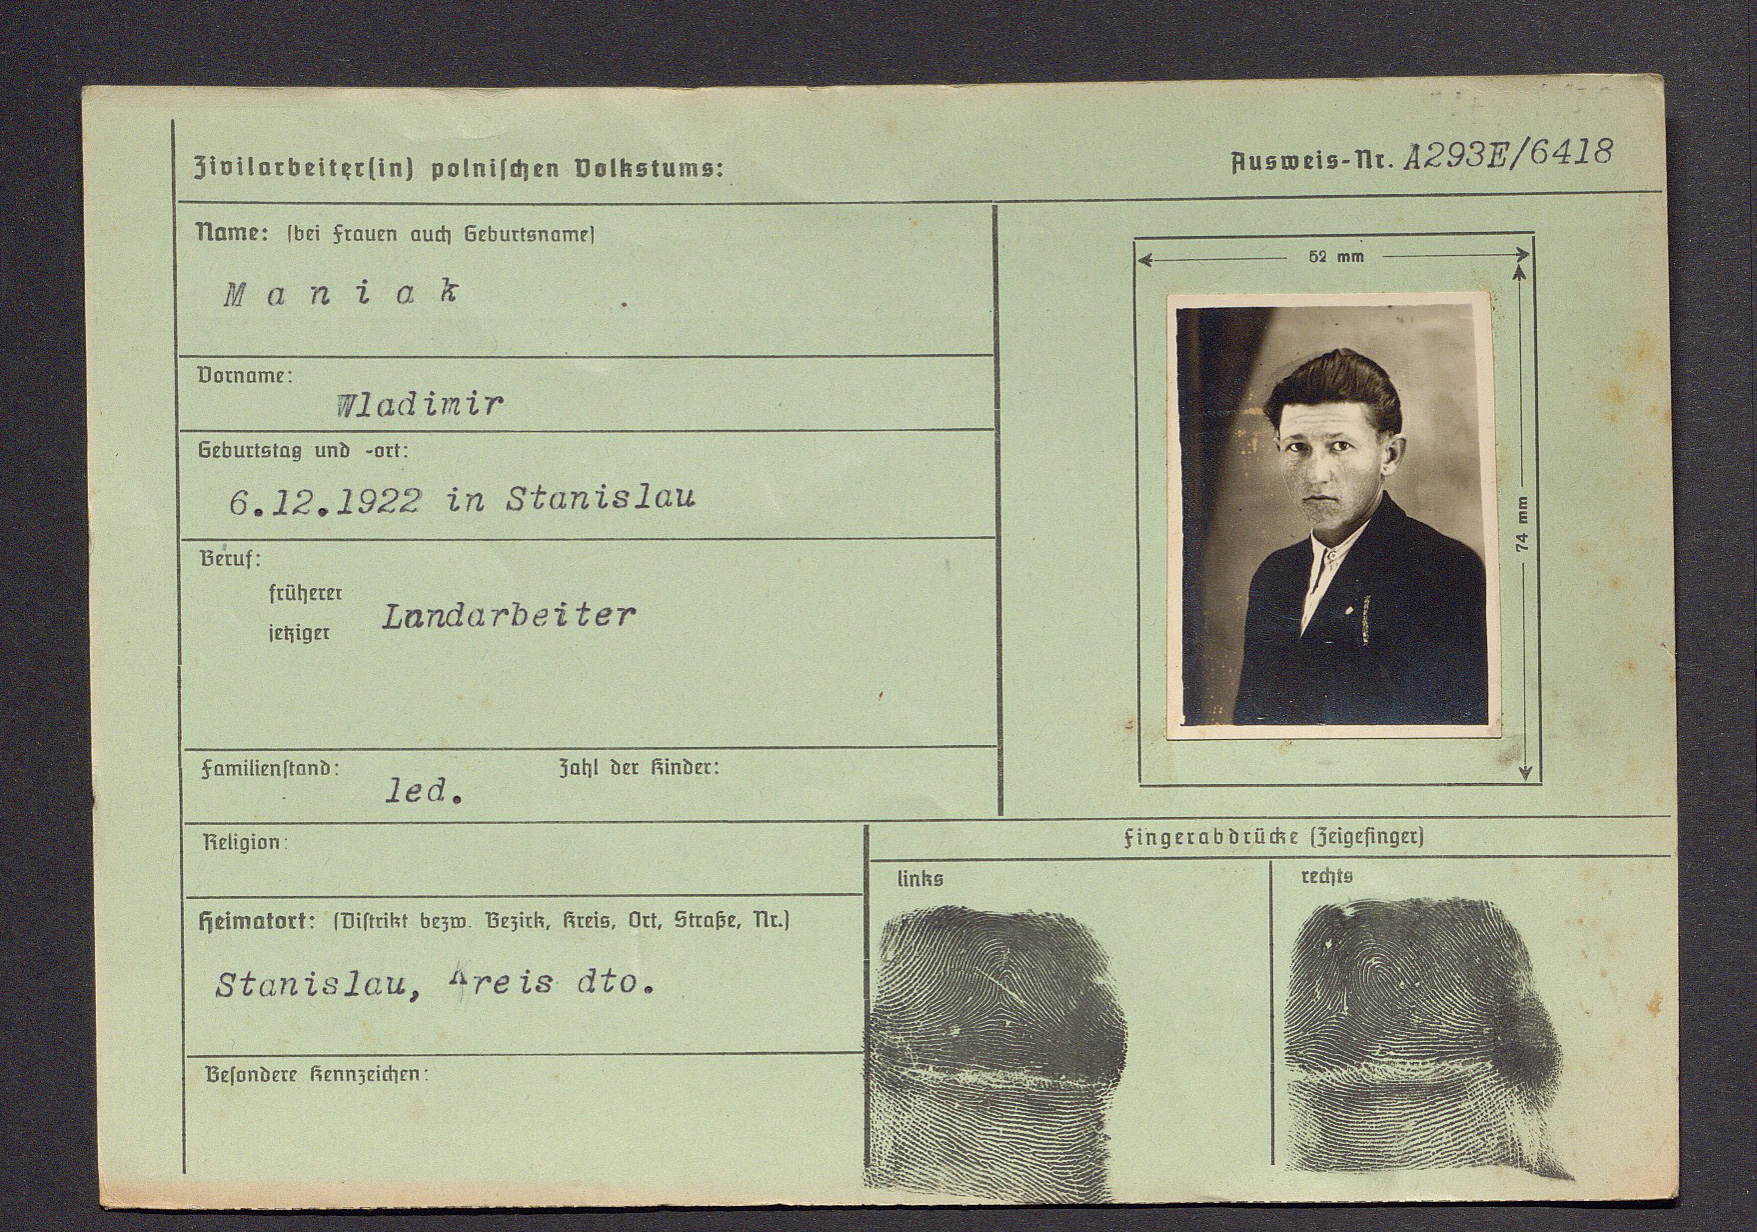 Zivilarbeiter(in) polnischen Volkstums:
Ausweis-Nr. A293E/6418
Name: (bei Frauen auch Geburtsname)
Maniak
Vorname:
Wladimir
Geburtstag und -ort:
6.12.1922 in Stanislau
Beruf:
früherer
jetziger
Landarbeiter
Familienstand: led.
Zahl der Kinder:
52 mm
74 mm
Religion:
Heimatort: (Distrikt bezw. Bezirk, Kreis, Ort, Straße, Nr.)
Stanislau, Kreis dto.
Besondere Kennzeichen:
Fingerabdrücke (Zeigefinger)
links
rechts